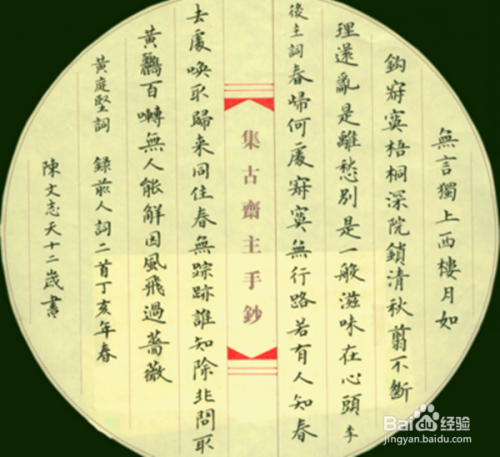 無言獨上西樓月如
鈎寂寞梧桐深院鎖清秋翦不斷
理還亂是離愁別是一般滋味在心頭李
後主詞春歸何處寂寞無行路若有人知春
集古齋主手鈔
去處喚取歸来同住春無踪跡誰知除非問取
黄鸝百囀無人能解因風飛過薔薇
黄庭堅詞 録前人詞二首丁亥年春
陳文志天十二歲書
Baidu经验
jingyan.baidu.com